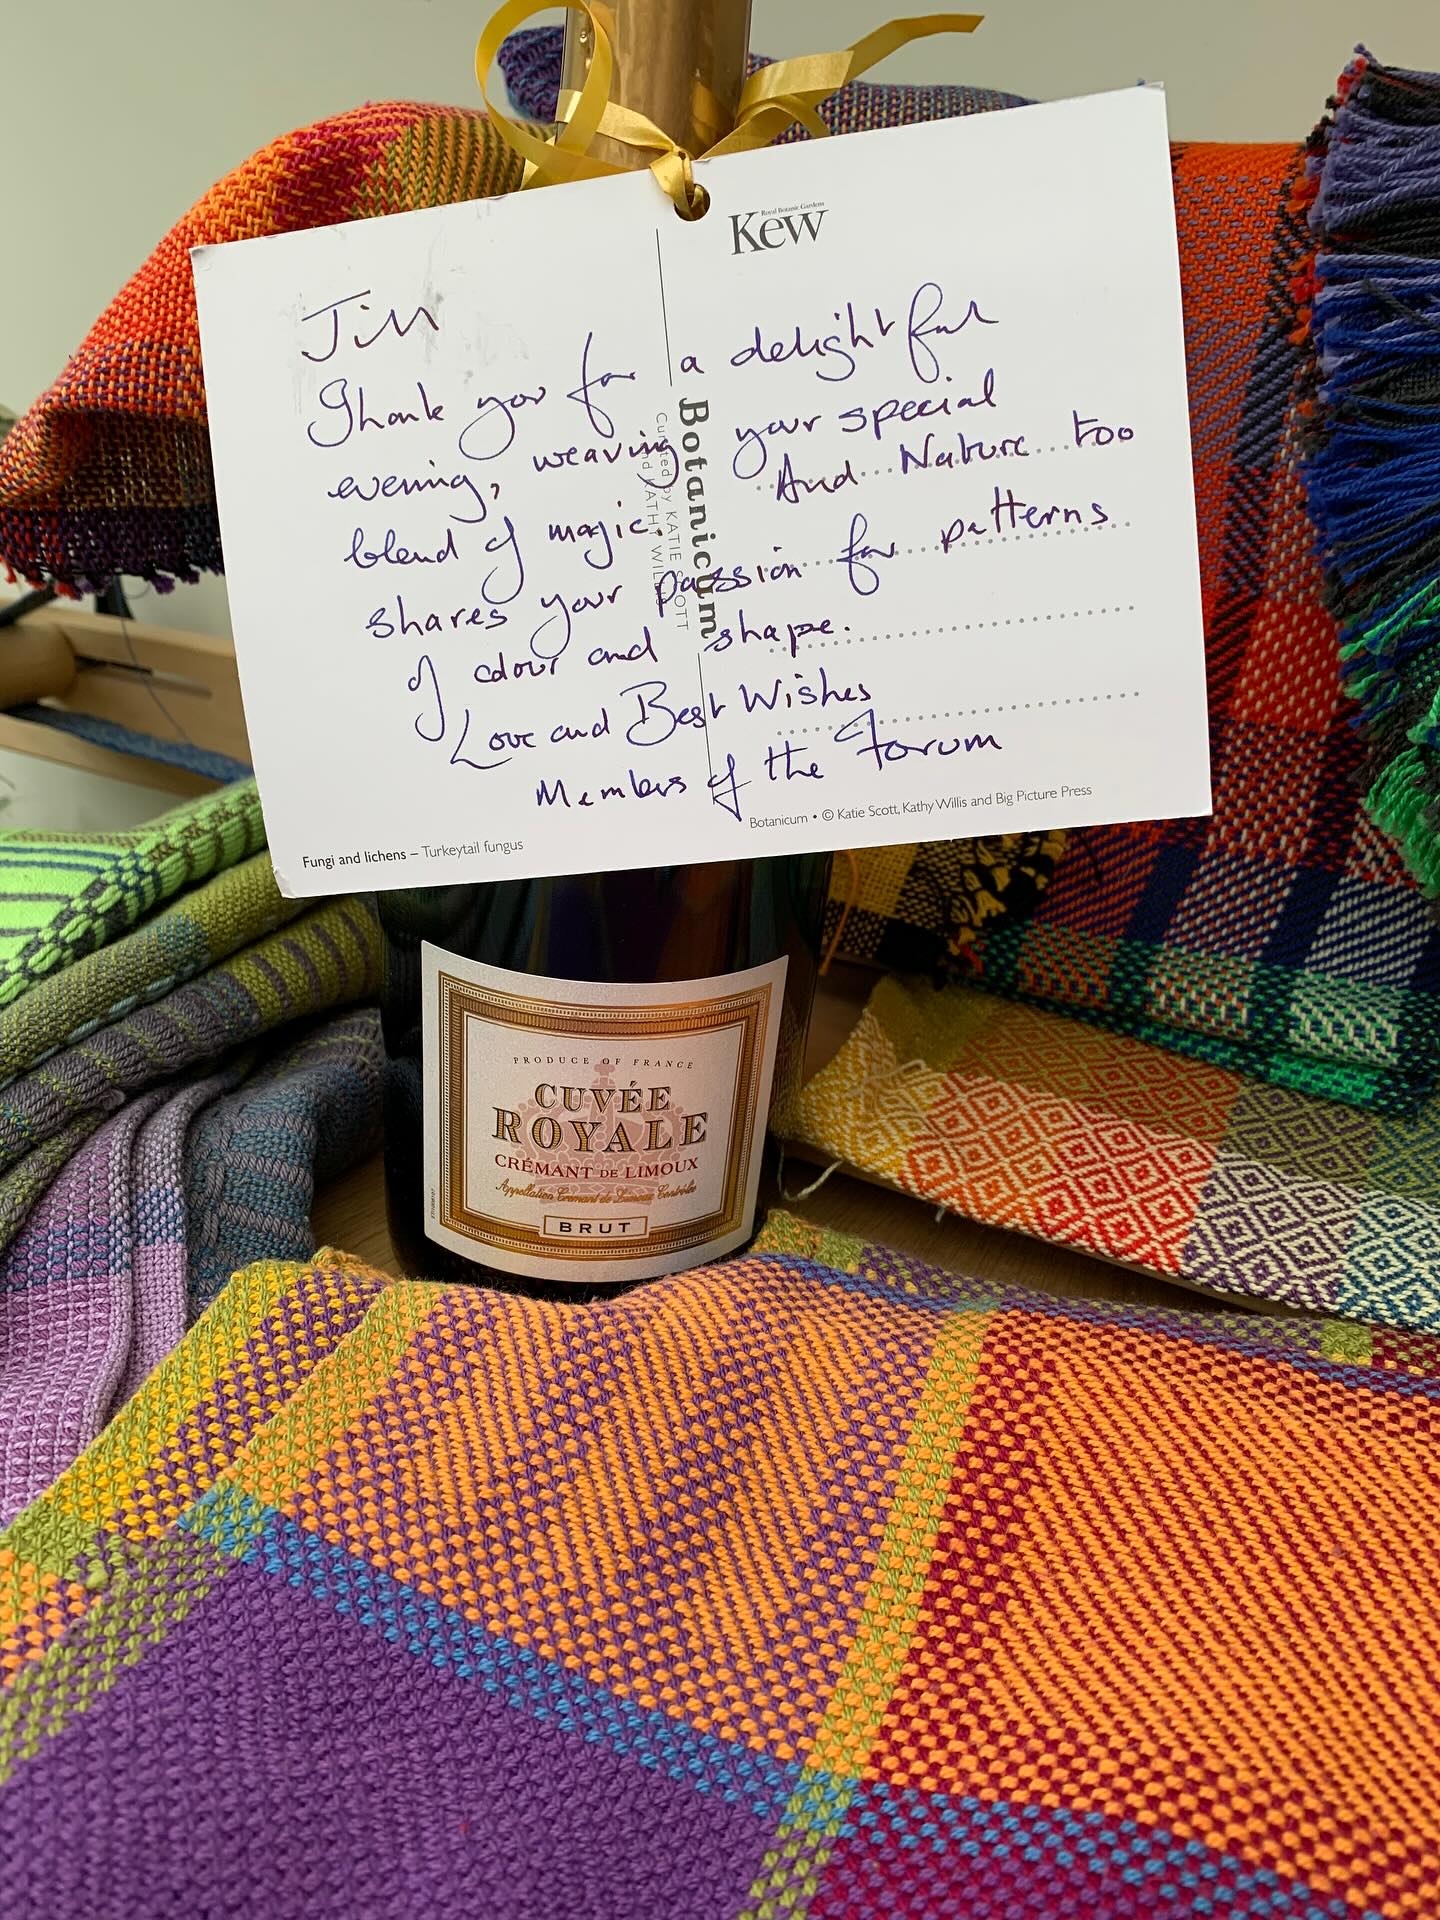 Royal Botanic Gardens
Kew
Jill
Thank you for a delightful
evening, weaving your special
blend of magic. And Nature too
shares your passion for patterns
of colour and shape.
Love and Best Wishes
Members of the Forum
Botanicum
Curated by KATIE SCOTT
and KATHY WILLIS
Botanicum • © Katie Scott, Kathy Willis and Big Picture Press
Fungi and lichens – Turkeytail fungus
PRODUCE OF FRANCE
CUVÉE
ROYALE
CRÉMANT DE LIMOUX
Appellation Crémant de Limoux Contrôlée
BRUT